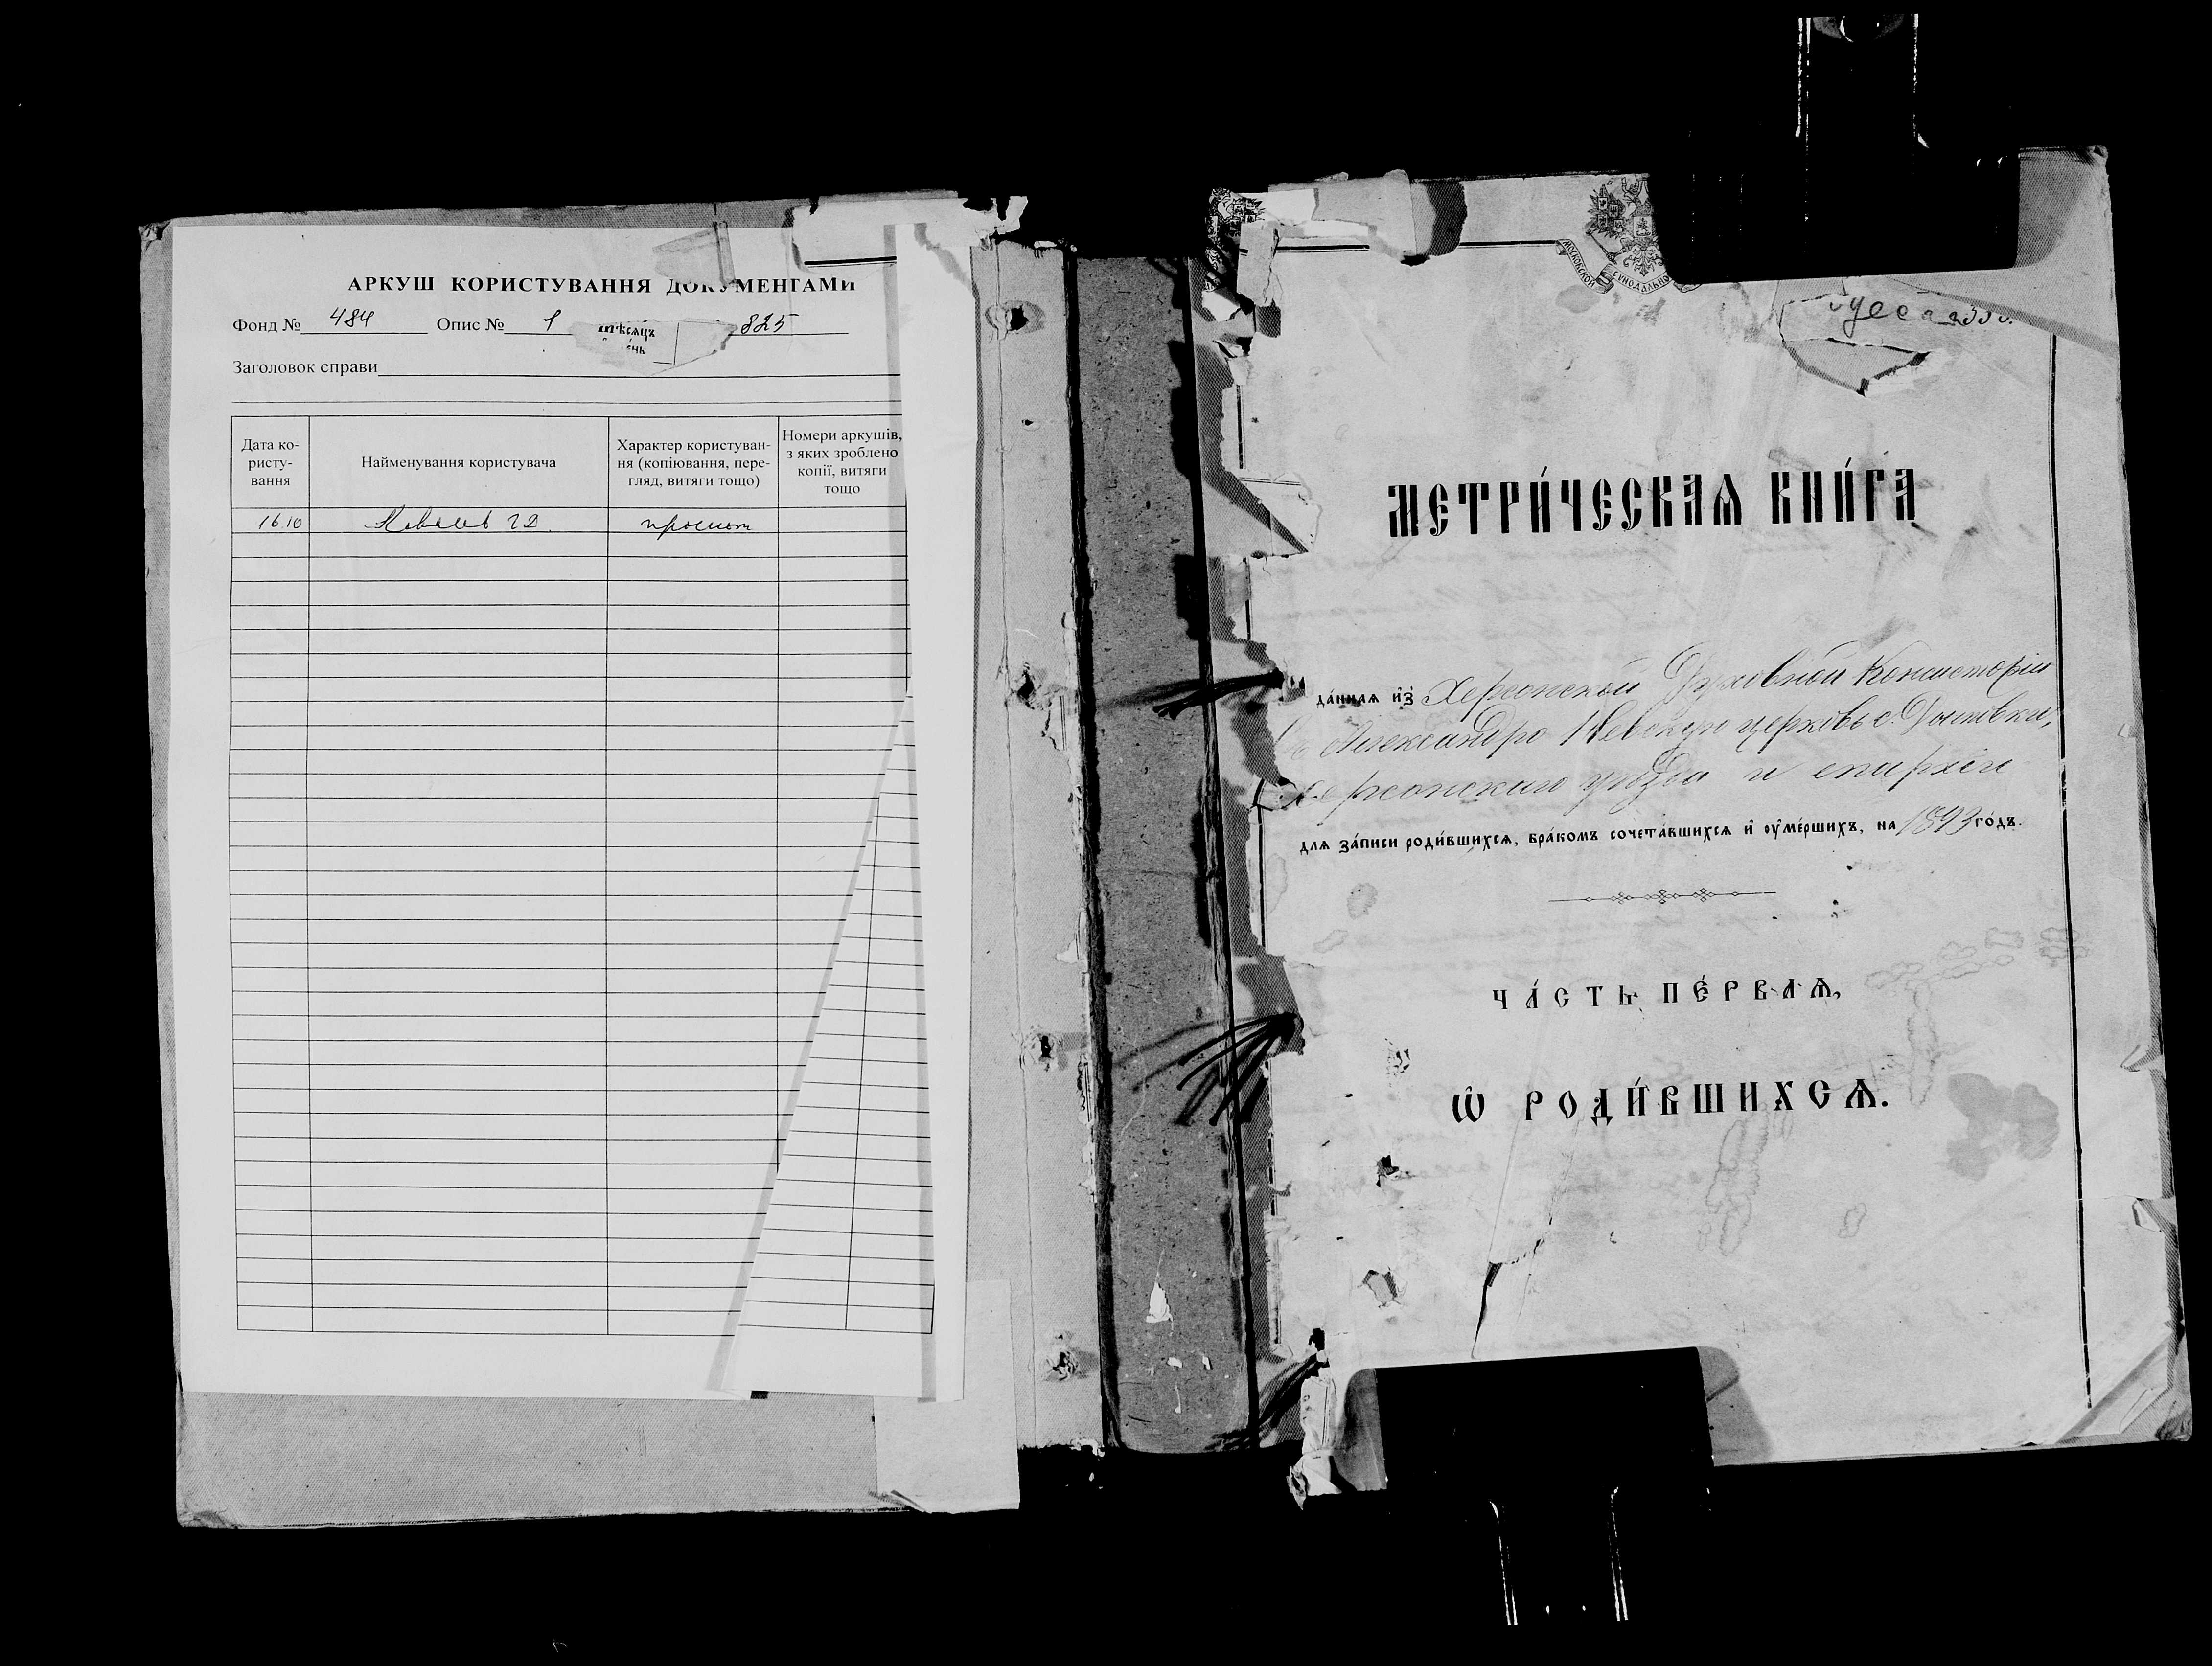 АРКУШ КОРИСТУВАННЯ ДОКУМЕНТАМИ
Фонд № 484 Опис № 1 825
мѣсяцъ
Заголовок справи
Дата ко-
ристу-
вання
Найменування користувача
Характер користуван-
ня (копіювання, пере-
гляд, витяги тощо)
Номери аркушів,
з яких зроблено
копії, витяги
тощо
16.10
МОСКОВСКОЙ СУНОДАЛЬНО
МЕТРИ́ЧЕСКАѦ КНИ́ГА
да́ннаѧ и҆з̾ Херсонской Духовной Консисторіи
Александро Невскую церковь с.
Херсонскаго уѣзда и епархіи
длѧ за́писи роди́вшихсѧ, бра́комъ сочета́вшихсѧ и҆ ѹ҆ме́ршихъ, на 1893 го́дъ.
ЧА́СТЬ ПЕ́РВАѦ,
Ѡ҆ РОДИ́ВШИХСѦ.